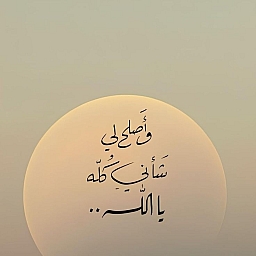 وأَصلح لي
شَأني كُلّه
يا الله ..